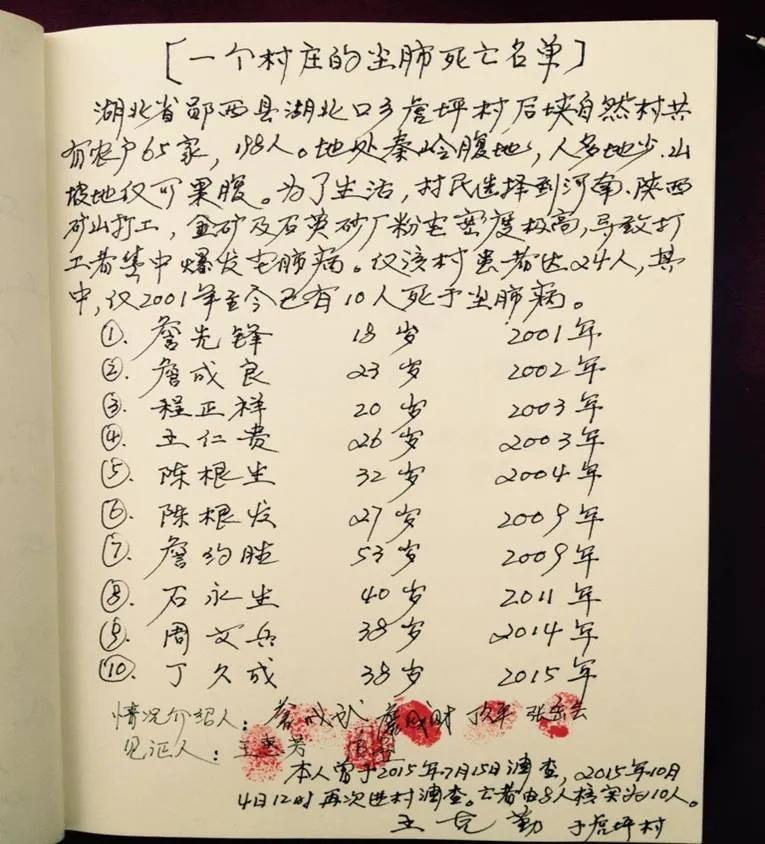 [一个村庄的尘肺死亡名单]
湖北省郧西县湖北口乡詹坪村后坡自然村共
有农户65家，198人。地处秦岭腹地，人多地少、山
坡地仅可果腹。为了生活，村民选择到河南、陕西
矿山打工，金矿及石英砂厂粉尘密度极高，导致打
工者集中爆发尘肺病。仅该村患者达24人，其
中，仅2001年至今已有10人死于尘肺病。
①. 詹先锋 18岁 2001年
②. 詹成良 23岁 2002年
③. 程正祥 20岁 2003年
④. 王仁贵 26岁 2003年
⑤. 陈根生 32岁 2004年
⑥. 陈根发 27岁 2009年
⑦. 詹约胜 53岁 2009年
⑧. 石永生 40岁 2011年
⑨. 周文兵 38岁 2014年
⑩. 丁久成 38岁 2015年
情况介绍人：詹成武 詹成财
见证人：
本人曾于2015年7月15日调查，2015年10月
4日12时再次进村调查。亡者由8人核实为10人。
王克勤 于詹坪村